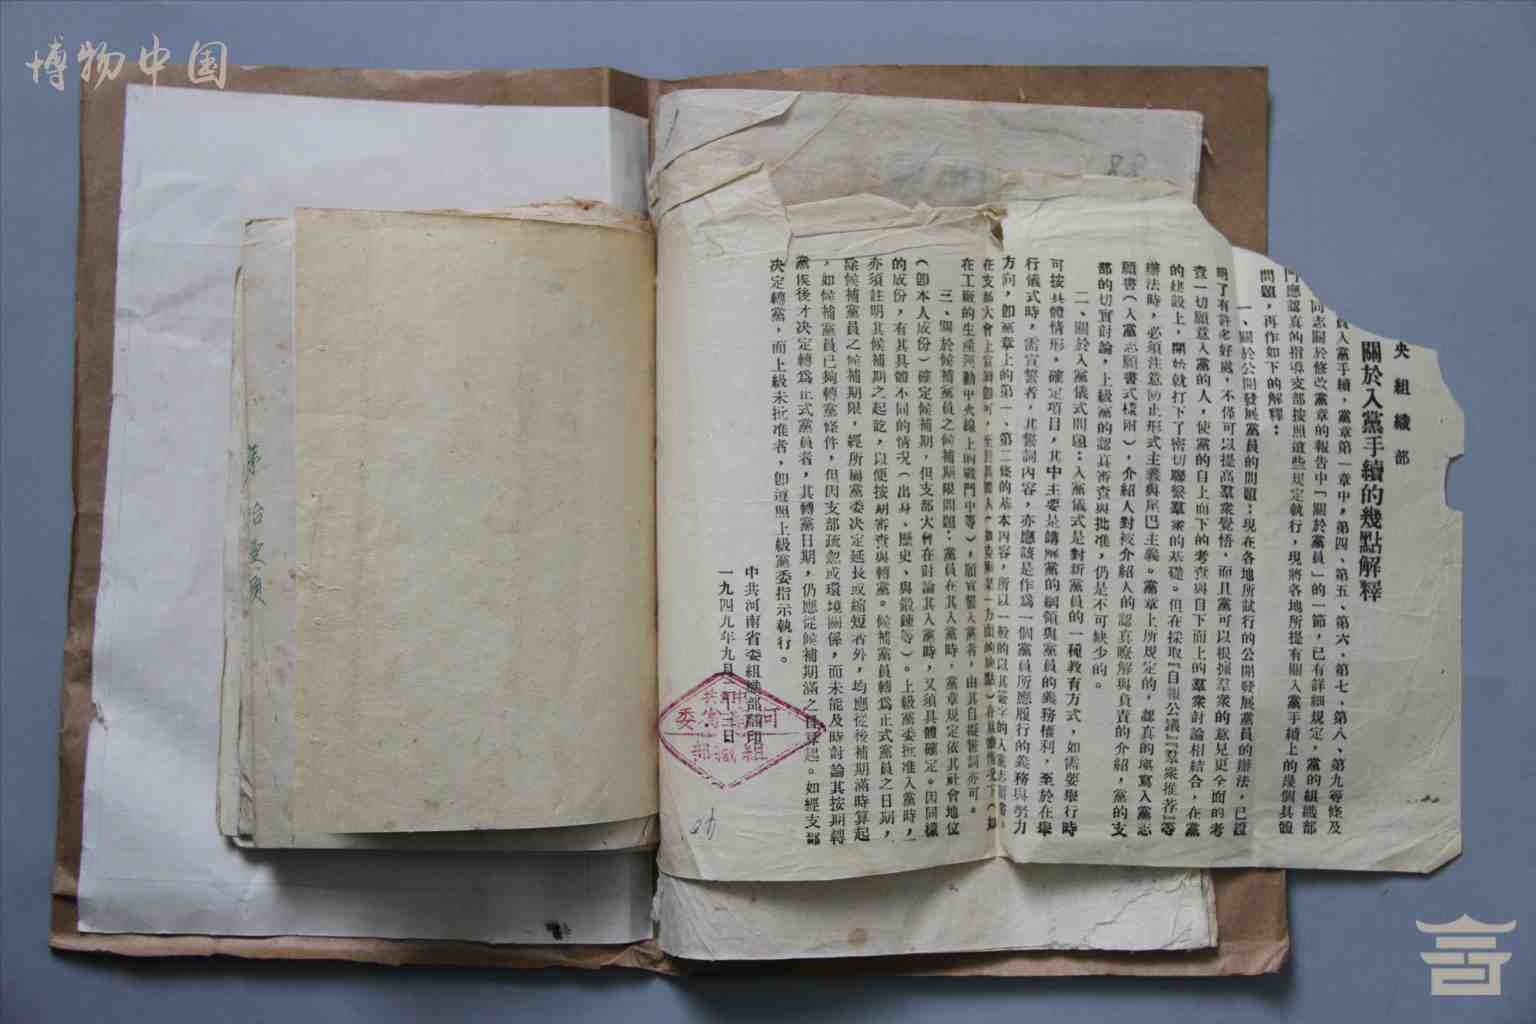 博物中国
央組織部
關於入黨手續的幾點解釋
員入黨手續，黨章第一章中，第四、第五、第六、第七、第八、第九等條及
同志關於修改黨章的報告中「關於黨員」的一節，已有詳細規定，黨的組織部
門應認真的指導支部按照這些規定執行，現將各地所提有關入黨手續上的幾個具體
問題，再作如下的解釋：
一、關於公開發展黨員的問題：現在各地所試行的公開發展黨員的辦法，已證
明了有許多好處，不僅可以提高羣衆覺悟，而且黨可以根據羣衆的意見更全面的考
查一切願意入黨的人，使黨的自上而下的考查與自下而上的羣衆討論相結合，在黨
的建設上，開始就打下了密切聯繫羣衆的基礎。但在採取『自報公議』『羣衆推荐』等
辦法時，必須注意防止形式主義與尾巴主義。黨章上所規定的，認真的塡寫入黨志
願書（入黨志願書式樣附），介紹人對被介紹人的認真瞭解與負責的介紹，黨的支
部的切實討論，上級黨的認真審查與批准，仍是不可缺少的。
二、關於入黨儀式問題：入黨儀式是對新黨員的一種教育方式，如需要舉行時
可按具體情形，確定項目，其中主要是講解黨的綱領與黨員的義務權利，至於在舉
行儀式時，需宣誓者，其誓詞內容，亦應該是作爲一個黨員所應履行的義務與努力
方向，卽黨章上的第一、第二條的基本內容，所以一般的以其簽字的入黨志願書，
在支部大會上宣讀卽可，
在工廠的生產運動中火線上的戰鬥中等），願宣誓入黨者，由其自擬誓詞亦可。
三、關於候補黨員之候補期限問題：黨員在其入黨時，黨章規定依其社會地位
（卽本人成份）確定候補期，但支部大會在討論其入黨時，又須具體確定。因同樣
的成份，有其具體不同的情況（出身、歷史、與鍛鍊等）。上級黨委批准入黨時，
亦須註明其候補期之起訖，以便按期審查與轉黨。候補黨員轉爲正式黨員之日期，
除候補黨員之候補期限，經所屬黨委决定延長或縮短者外，均應從後補期滿時算起
，如候補黨員已夠轉黨條件，但因支部疏忽或環境關係，而未能及時討論其按期轉
黨俟後才决定轉爲正式黨員者，其轉黨日期，仍應從候補期滿之日算起。如經支部
决定轉黨，而上級未批准者，卽遵照上級黨委指示執行。
中共河南省委組織部翻印
一九四九年九月二十三日
中共河南省委
組織部